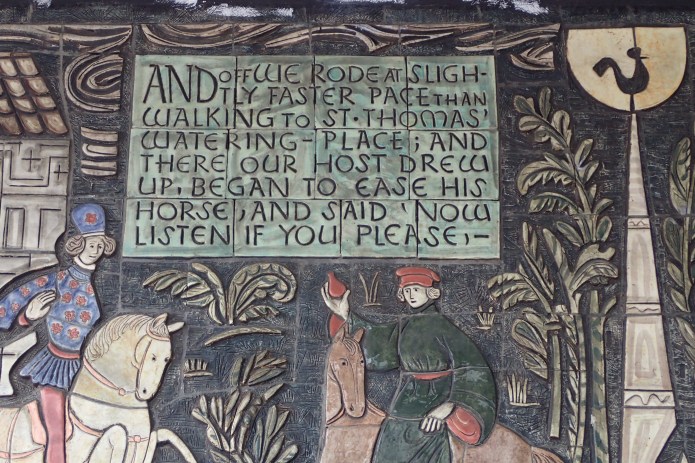 AND OFF WE RODE AT SLIGH-
TLY FASTER PACE THAN
WALKING TO ST. THOMAS'
WATERING-PLACE; AND
THERE OUR HOST DREW
UP, BEGAN TO EASE HIS
HORSE, AND SAID 'NOW
LISTEN IF YOU PLEASE,—